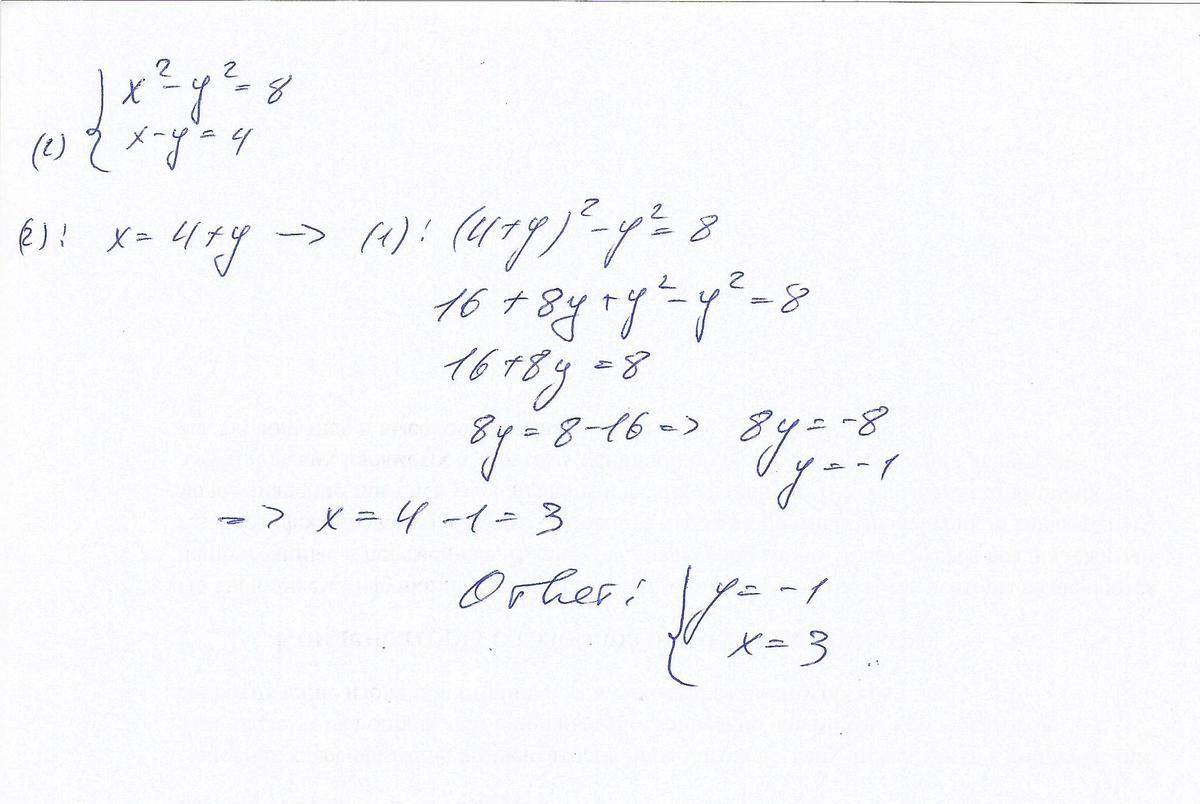 x² - y² = 8
(2) x - y = 4
(2): x = 4 + y -> (1): (4+y)² - y² = 8
16 + 8y + y² - y² = 8
16 + 8y = 8
8y = 8 - 16 => 8y = -8
y = -1
=> x = 4 - 1 = 3
Ответ: { y = -1
x = 3